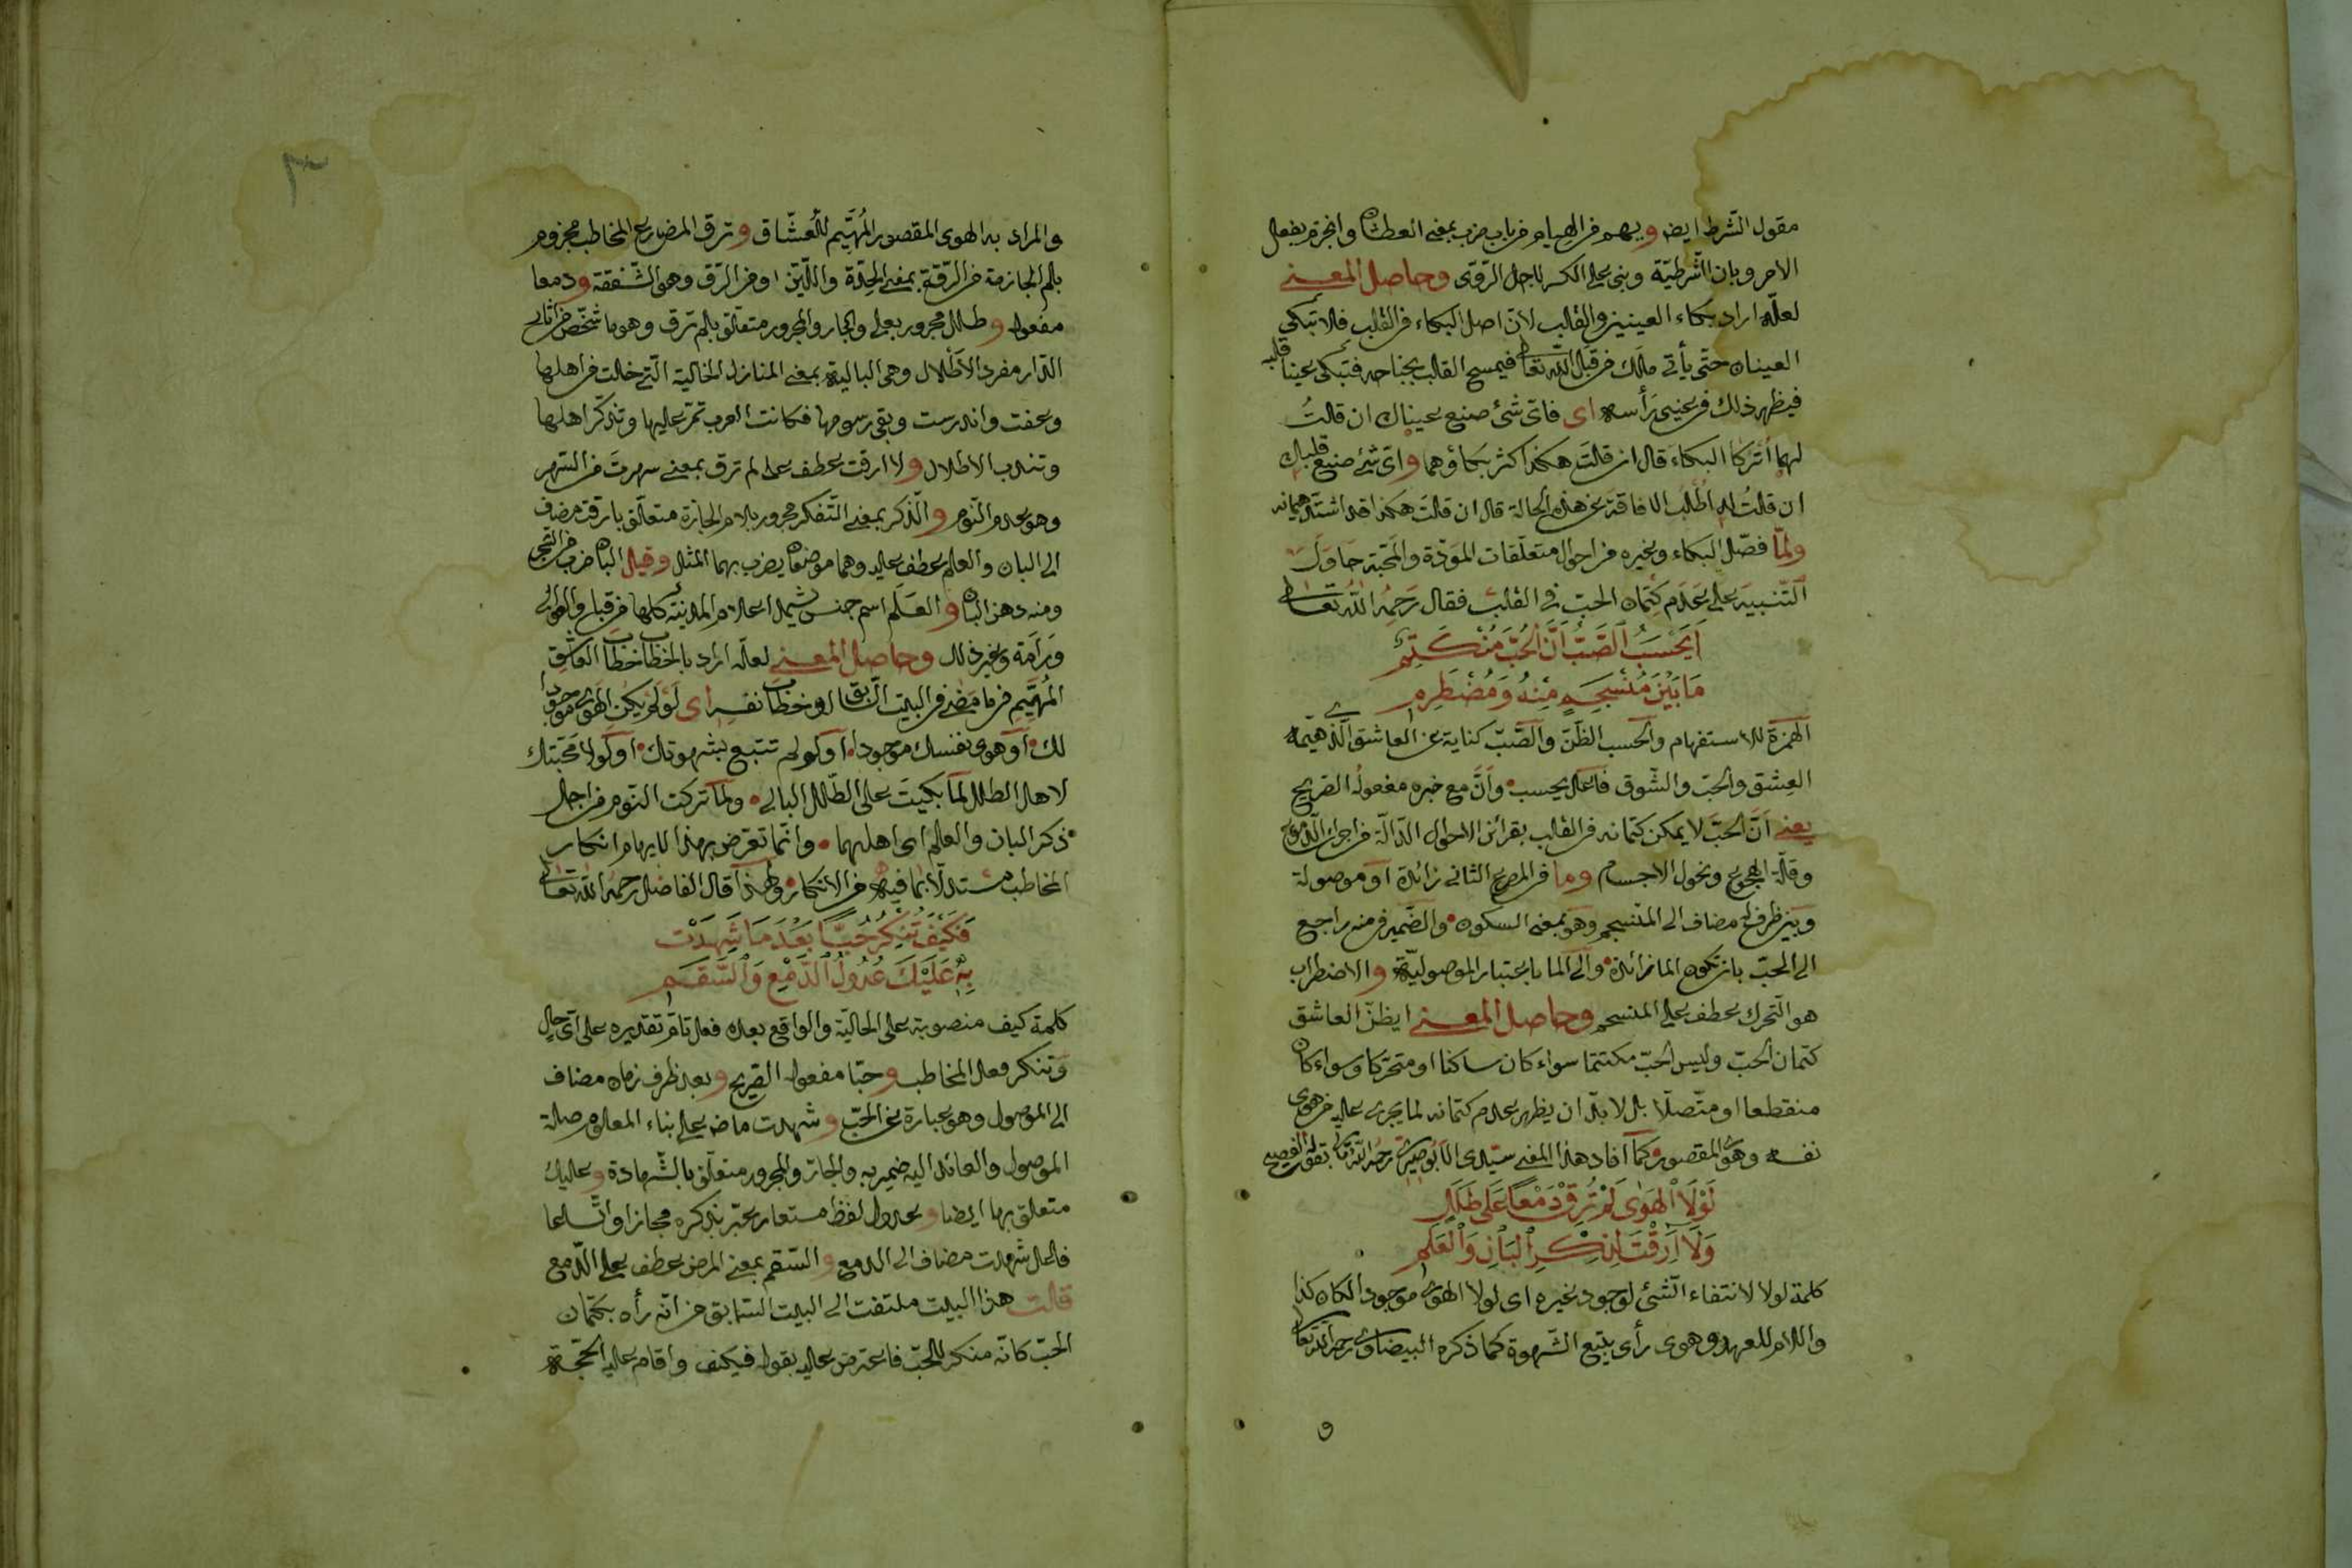 مقول الشرط ايض ويهم من الهيام من باب ضرب بمعنى العطشان وانجزم بفعل
الامر وبان الشرطية وبنى على الكسر لاجل الروى وحاصل المعنى
لعله اراد بكاء العينين والقلب لان اصل البكاء من القلب فلا تبكى
العينان حتى يأتى ملك من قبل الله تعالى فيمسح القلب بجناحه فتبكى عينا قلبه
فيظهر ذلك من عينى رأسه اى فاى شئ صنع عيناك ان قلتُ
لهما أتركا البكاء قال ان قلتَ هكذا كثر بكاؤهما واى شئ صنع قلبك
ان قلتُ له اطلب الافاقة عن هذه الحالة قال ان قلتَ هكذا قد اشتد هيمانه
ولمّا فصّل البكاء وغيره من احوال متعلقات المودّة والمحبّة حاول
التّنبيه على عدم كتمان الحبّ فى القلب فقال رحمه الله تعالى
اَيَحْسَبُ الصَّبُّ اَنَّ الْحُبَّ مُنْكَتِمٌ
مَا بَيْنَ مُنْسَجِمٍ مِنْهُ وَمُضْطَرِمِ
الهمزة للاستفهام والحسب الظنّ والصّبّ كناية عن العاشق الذى هيّمه
العشق والحبّ والشّوق فاعل يحسب وأنّ مع خبره مفعوله الصريح
يعنى انّ الحبّ لا يمكن كتمانه فى القلب بقرائن الاحوال الدّالّة من اجراء الدّموع
وقلّة الهجوع ونحول الاجسام وما فى المصرع الثانى زائدة او موصولة
وبين ظرف له مضاف الى المنسجم وهو بمعنى السكون والضّمير فى منه راجع
الى الحبّ بان تكون الما زائدة والى الما باعتبار الموصوليّة والاضطراب
هو التحرك عطف على المنسجم وحاصل المعنى ايظنّ العاشق
كتمان الحبّ وليس الحبّ مكتتما سواء كان ساكنا او متحركا وسواء كان
منقطعا او متّصلا بل لا بدّ ان يظهر عدم كتمانه لما يجرى عليه من هوى
نفسه وهو المقصور كما افاد هذا المعنى سيّدى الابوصيرى رحمه الله تعالى بقوله الفصيح
لَوْلَا الْهَوٰى لَمْ تُرِقْ دَمْعًا عَلٰى طَلَلٍ
وَلَا اَرِقْتَ لِذِكْرِ الْبَانِ وَالْعَلَمِ
كلمة لولا لانتفاء الشئ لوجود غيره اى لولا الهوى موجودا لكان كذا
واللام للعهد وهوى رأى يتبع الشّهوة كما ذكره البيضاوى رحمه الله تعالى
و
٣
والمراد به الهوى المقصور المُهيّم للعُشّاق وترق المضارع المخاطب مجزوم
بلم الجازمة من الرّقّة بمعنى الحِدّة واللّين او من الرّق وهو الشّفقة ودمعا
مفعوله وطلل مجرور بعلى والجار والمجرور متعلّق بلم ترق وهو ما شخص من اثار
الدّار مفرد الأطلال وهى البالية بمعنى المنازل الخالية التى خلت من اهلها
وعفت واندرست وبقى رسومها فكانت العرب تمرّ عليها وتذكّر اهلها
وتندب الاطلال ولا ارقت عطف على لم ترق بمعنى سهرت من السّهر
وهو عدم النّوم والذّكر بمعنى التّفكر مجرور بلام الجارة متعلّق بارقت مضاف
الى البان والعلم عطف عليه وهما موضعان يضرب بهما المثل وقيل البان ضرب من الشّجر
ومنه دهن البان والعلم اسم جنس يشمل اعلام المدينة كلها من قبل والعوالى
ورامة وغير ذلك وحاصل المعنى لعله اراد بالخطاب خطاب العاشق
المُهيّم فيما مضى فى البيت السّابق او خطاب نفسه اى لَوْ لَمْ يكن الهوى موجودا
لك او هوى نفسك موجودا او لو لم تتبع بشهوتك او لولا محبّتك
لاهل الطلل لَمَا بكيتَ على الطّلل البالى ولَمَا تركت النّوم من اجل
ذكر البان والعلم اى اهلهما وانّما تعرّض بهذا لايهام انكار
المخاطب مستدلّا بما فيه من الانكار ولهذا قال الفاضل رحمه الله تعالى
فَكَيْفَ تُنْكِرُ حُبًّا بَعْدَ مَا شَهِدَتْ
بِهِ عَلَيْكَ عُدُولُ الدَّمْعِ وَالسَّقَمِ
كلمة كيف منصوبة على الحاليّة والواقع بعده فعل تامّ تقديره على اىّ حالٍ
وتنكر فعل المخاطب وحبّا مفعوله الصّريح وبعد ظرف زمان مضاف
الى الموصول وهو عبارة عن الحبّ وشهدت ماض على بناء المعلوم صلة
الموصول والعائد اليه ضمير به والجارّ والمجرور متعلّق بالشّهادة وعليك
متعلق بها ايضا وعدول لفظ مستعار عبّر بذكره مجازا واتّساعا
فاعل شهدت مضاف الى الدمع والسّقم بمعنى المرض عطف على الدّمع
قالت هذا البيت ملتفت الى البيت السّابق من انّه رأه بكتمان
الحبّ كانّه منكر للحبّ فاعترض عليه بقوله فكيف واقام عليه الحجّة